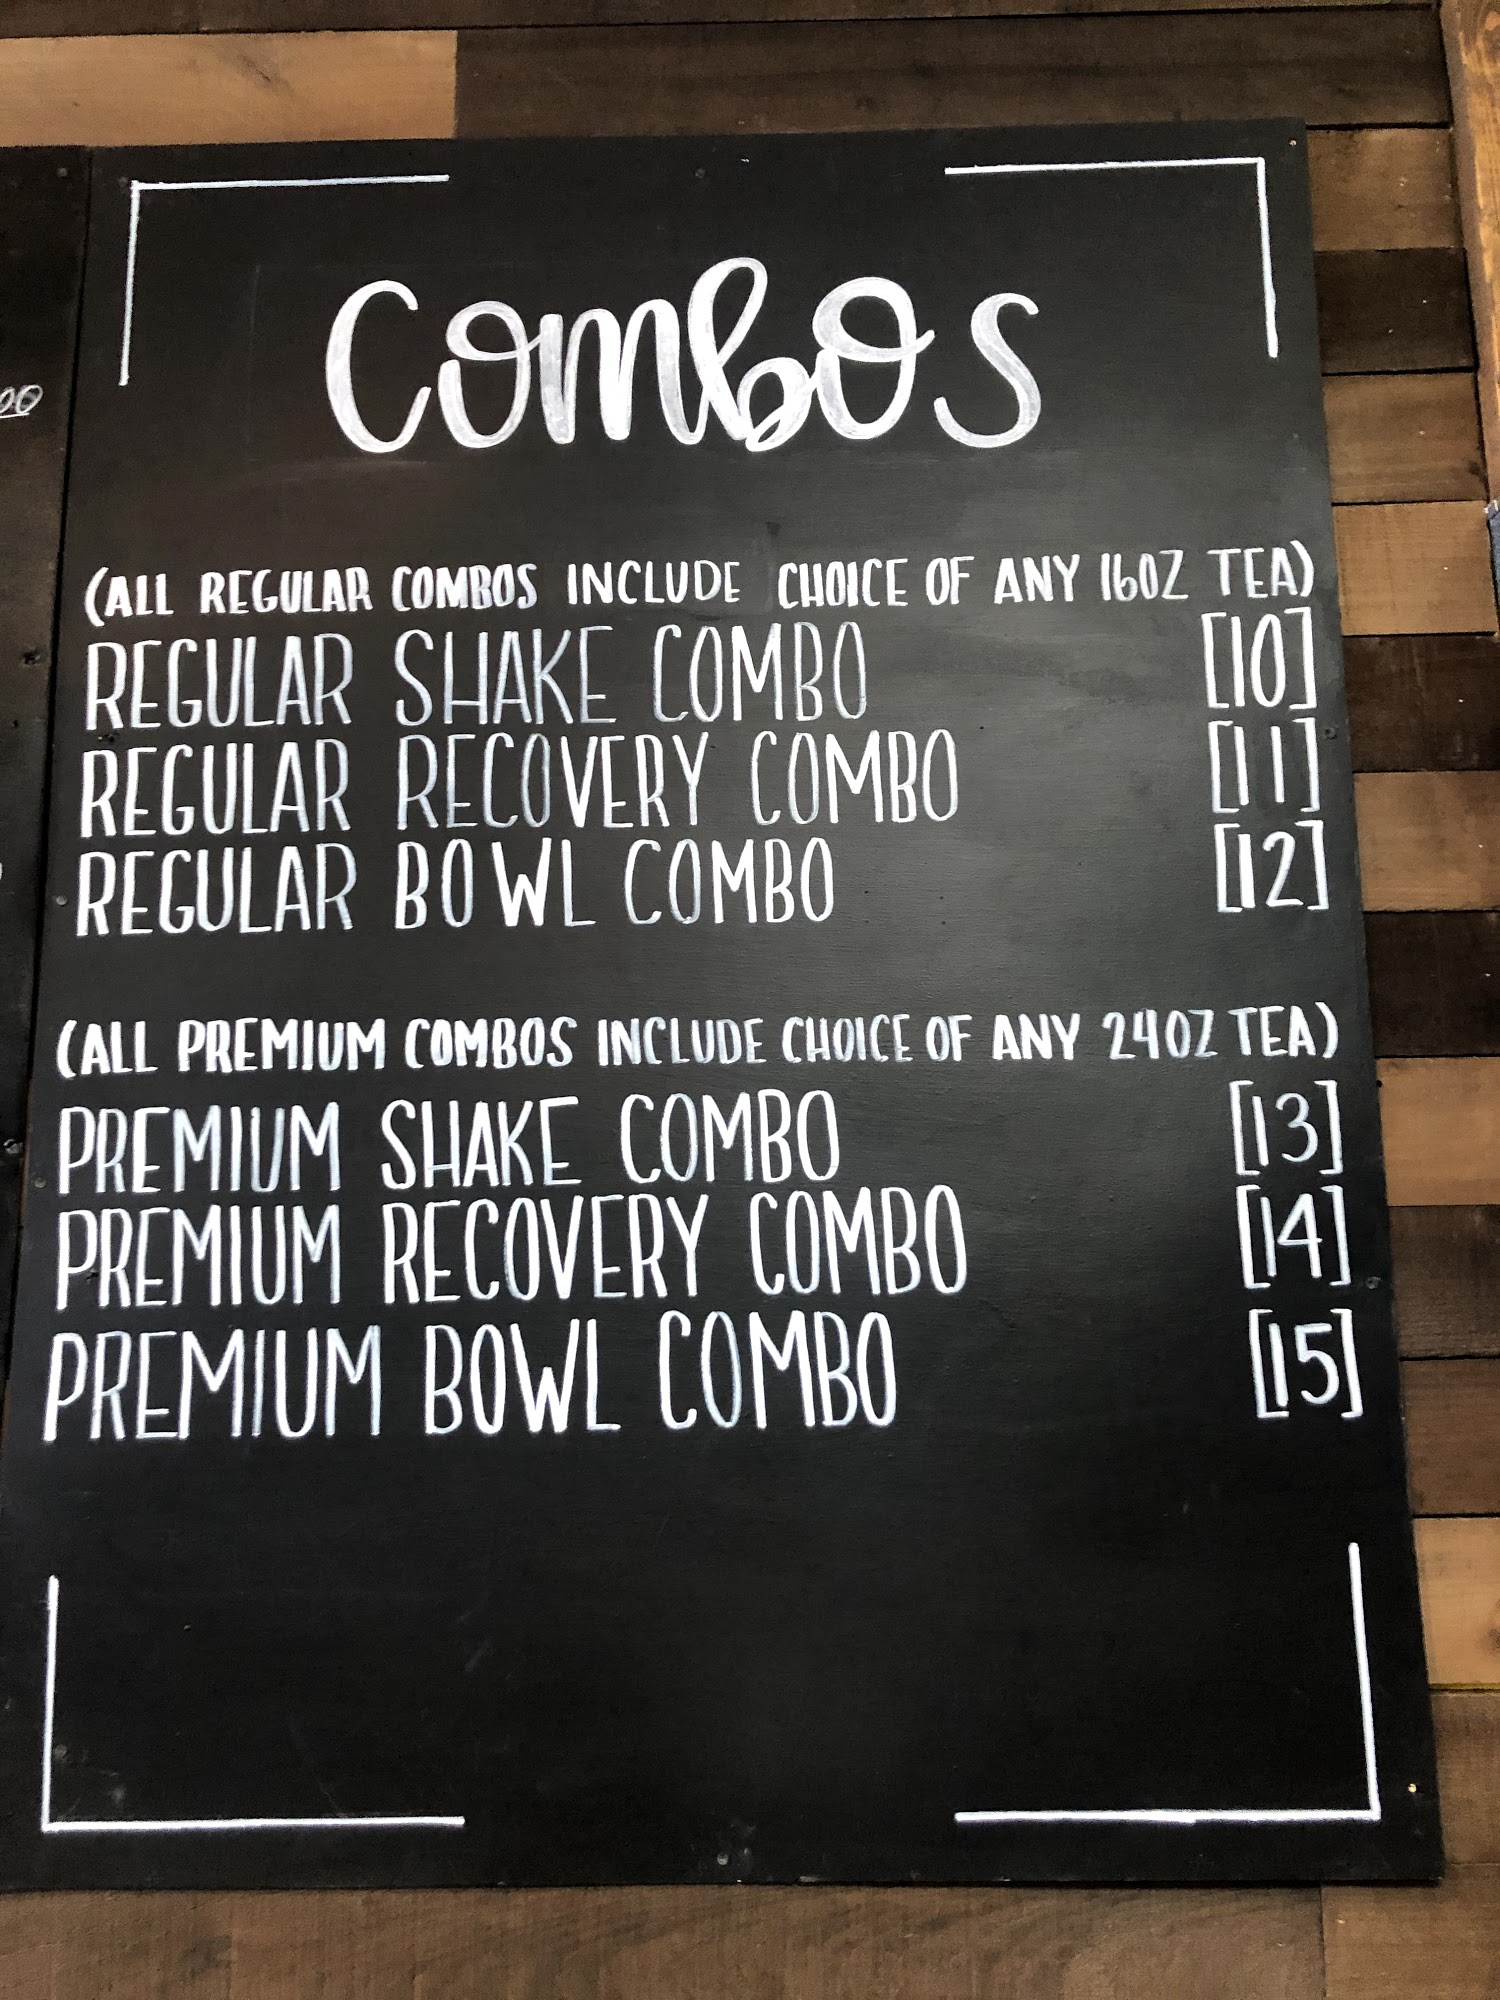 Combos
(ALL REGULAR COMBOS INCLUDE CHOICE OF ANY 16OZ TEA)
REGULAR SHAKE COMBO [10]
REGULAR RECOVERY COMBO [11]
REGULAR BOWL COMBO [12]
(ALL PREMIUM COMBOS INCLUDE CHOICE OF ANY 24OZ TEA)
PREMIUM SHAKE COMBO [13]
PREMIUM RECOVERY COMBO [14]
PREMIUM BOWL COMBO [15]